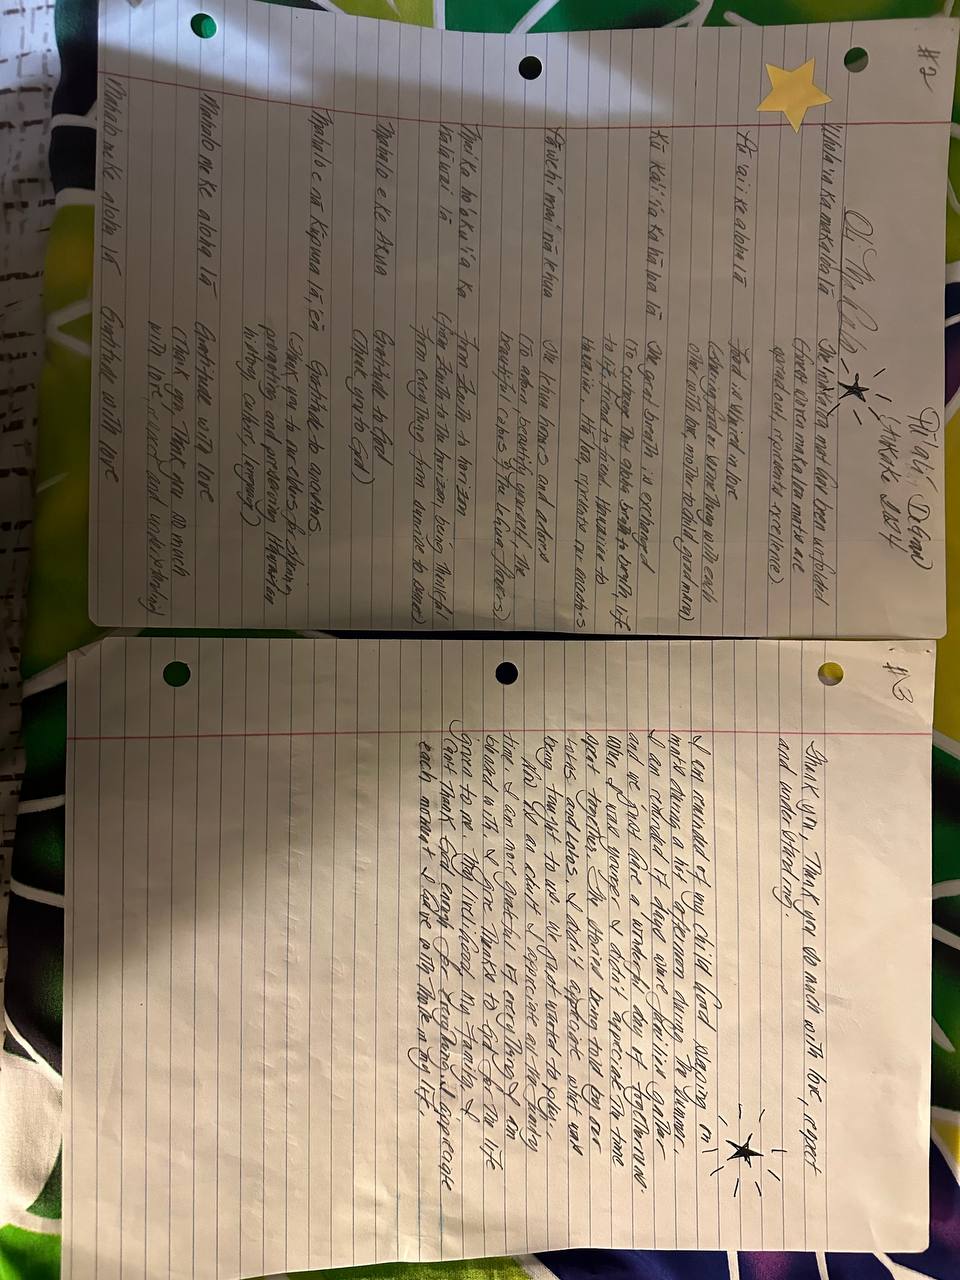 #2
Oli Mahalo
'Uhola 'ia ka makaloa lā The makaloa mat has been unfolded
(Great woven makaloa mats are
spread out, represents excellence)
Pū'ai i ke aloha lā Food is shared in love
(Sharing food or something with each
other, with love, mother to child, grandmary)
Kū Ka'i 'ia ka hā loa lā The great breath is exchanged
(To exchange the aloha breath to breath, life
to life, friend to friend, Hawaiian to
Hawaiian. Hā loa, represents our ancestors
Pāwehi mai nā lehua The lehua honors and adorns
(To adorn, beautify yourself, the
beautiful colors of the lehua flowers)
Mai ka ho'oku'i a ka From Zenith to horizon
hālāwai lā (From Zenith to the horizon, being thankful
for everything from sunrise to sunset)
Mahalo e ke Akua Gratitude to God
(Thank you to God)
Mahalo e nā kūpuna lā, 'eā Gratitude to ancestors
(Thank you to our elders for sharing
perpetuating and preserving Hawaiian
history, culture, language)
Mahalo me ke aloha lā Gratitude with love
(Thank you, Thank you so much
with love, respect and understanding)
Mahalo me ke aloha lā Gratitude with love
#3
Thank you, Thank you so much with love, respect
and understanding.
I am reminded of my child hood sleeping on
mats during a hot afternoon during the summer.
I am reminded of days where families gather
and we just have a wonderful day of togetherness.
When I was younger I didn't appreciate the time
spent together. The stories being told by our
and I didn't appreciate what was
being taught to us. We just wanted to play.
Now as an adult I appreciate all the family
time. I am more grateful of every thing I am
blessed with. I give thanks to God for the life
given to me. The livelihood, my family, I
can't thank God enough for everything. I appreciate
each moment I have with them in my life.